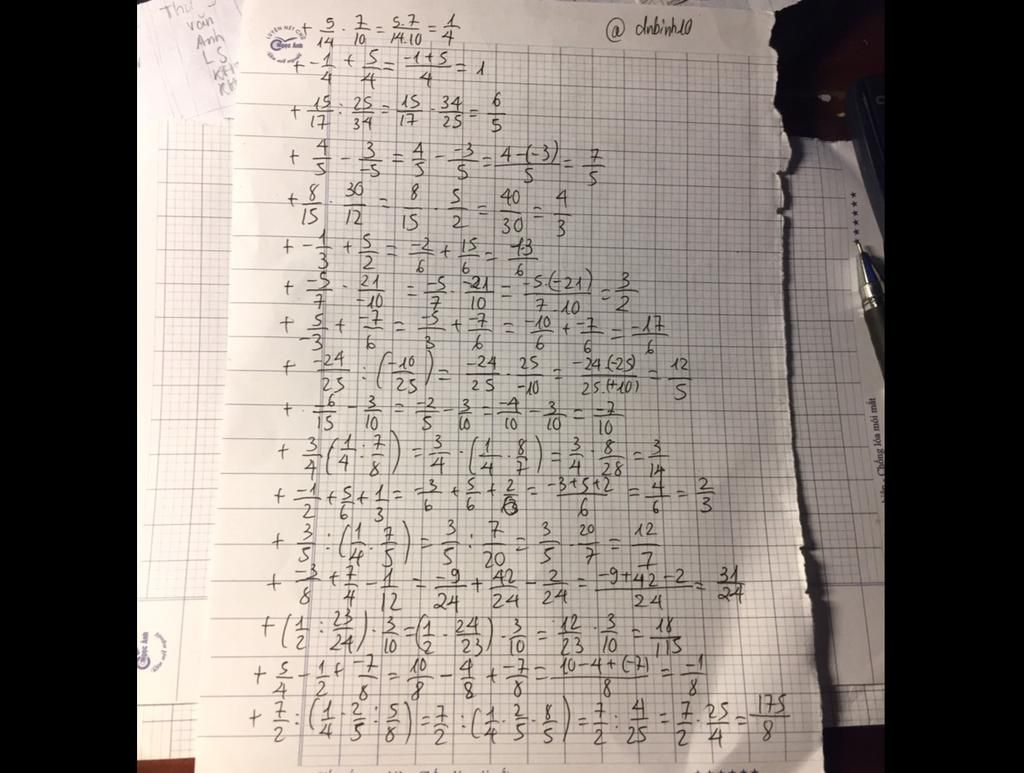 Thư
văn
Anh
LS
@ dnbinh10
LUYỆN NÉT CHỮ
Ngọc Ánh
+ 5/14 · 7/10 = 5.7/14.10 = 1/4
+ -1/4 + 5/4 = -1+5/4 = 1
+ 15/17 : 25/34 = 15/17 · 34/25 = 6/5
+ 4/5 - 3/-5 = 4/5 - -3/5 = 4-(-3)/5 = 7/5
+ 8/15 · 30/12 = 8/15 · 5/2 = 40/30 = 4/3
+ -1/3 + 5/2 = -2/6 + 15/6 = 13/6
+ -5/7 · 21/-10 = -5/7 · -21/10 = -5.(-21)/7.10 = 3/2
+ 5/-3 + -7/6 = -5/3 + -7/6 = -10/6 + -7/6 = -17/6
+ -24/25 : (-10/25) = -24/25 · 25/-10 = -24.(-25)/25.(+10) = 12/5
+ -6/15 - 3/10 = -2/5 - 3/10 = -4/10 - 3/10 = -7/10
+ 3/4 · (1/4 : 7/8) = 3/4 · (1/4 · 8/7) = 3/4 · 8/28 = 3/14
+ -1/2 + 5/6 + 1/3 = -3/6 + 5/6 + 2/6 = -3+5+2/6 = 4/6 = 2/3
+ 3/5 : (1/4 · 7/5) = 3/5 : 7/20 = 3/5 · 20/7 = 12/7
+ -3/8 + 7/4 - 1/12 = -9/24 + 42/24 - 2/24 = -9+42-2/24 = 31/24
+ (1/2 : 23/24) · 3/10 = (1/2 · 24/23) · 3/10 = 12/23 · 3/10 = 18/115
+ 5/4 - 1/2 + -7/8 = 10/8 - 4/8 + -7/8 = 10-4+(-7)/8 = -1/8
+ 7/2 : (1/4 · 2/5 : 5/8) = 7/2 : (1/4 · 2/5 · 8/5) = 7/2 : 4/25 = 7/2 · 25/4 = 175/8
Chống lóa mỏi mắt
Ngọc Ánh